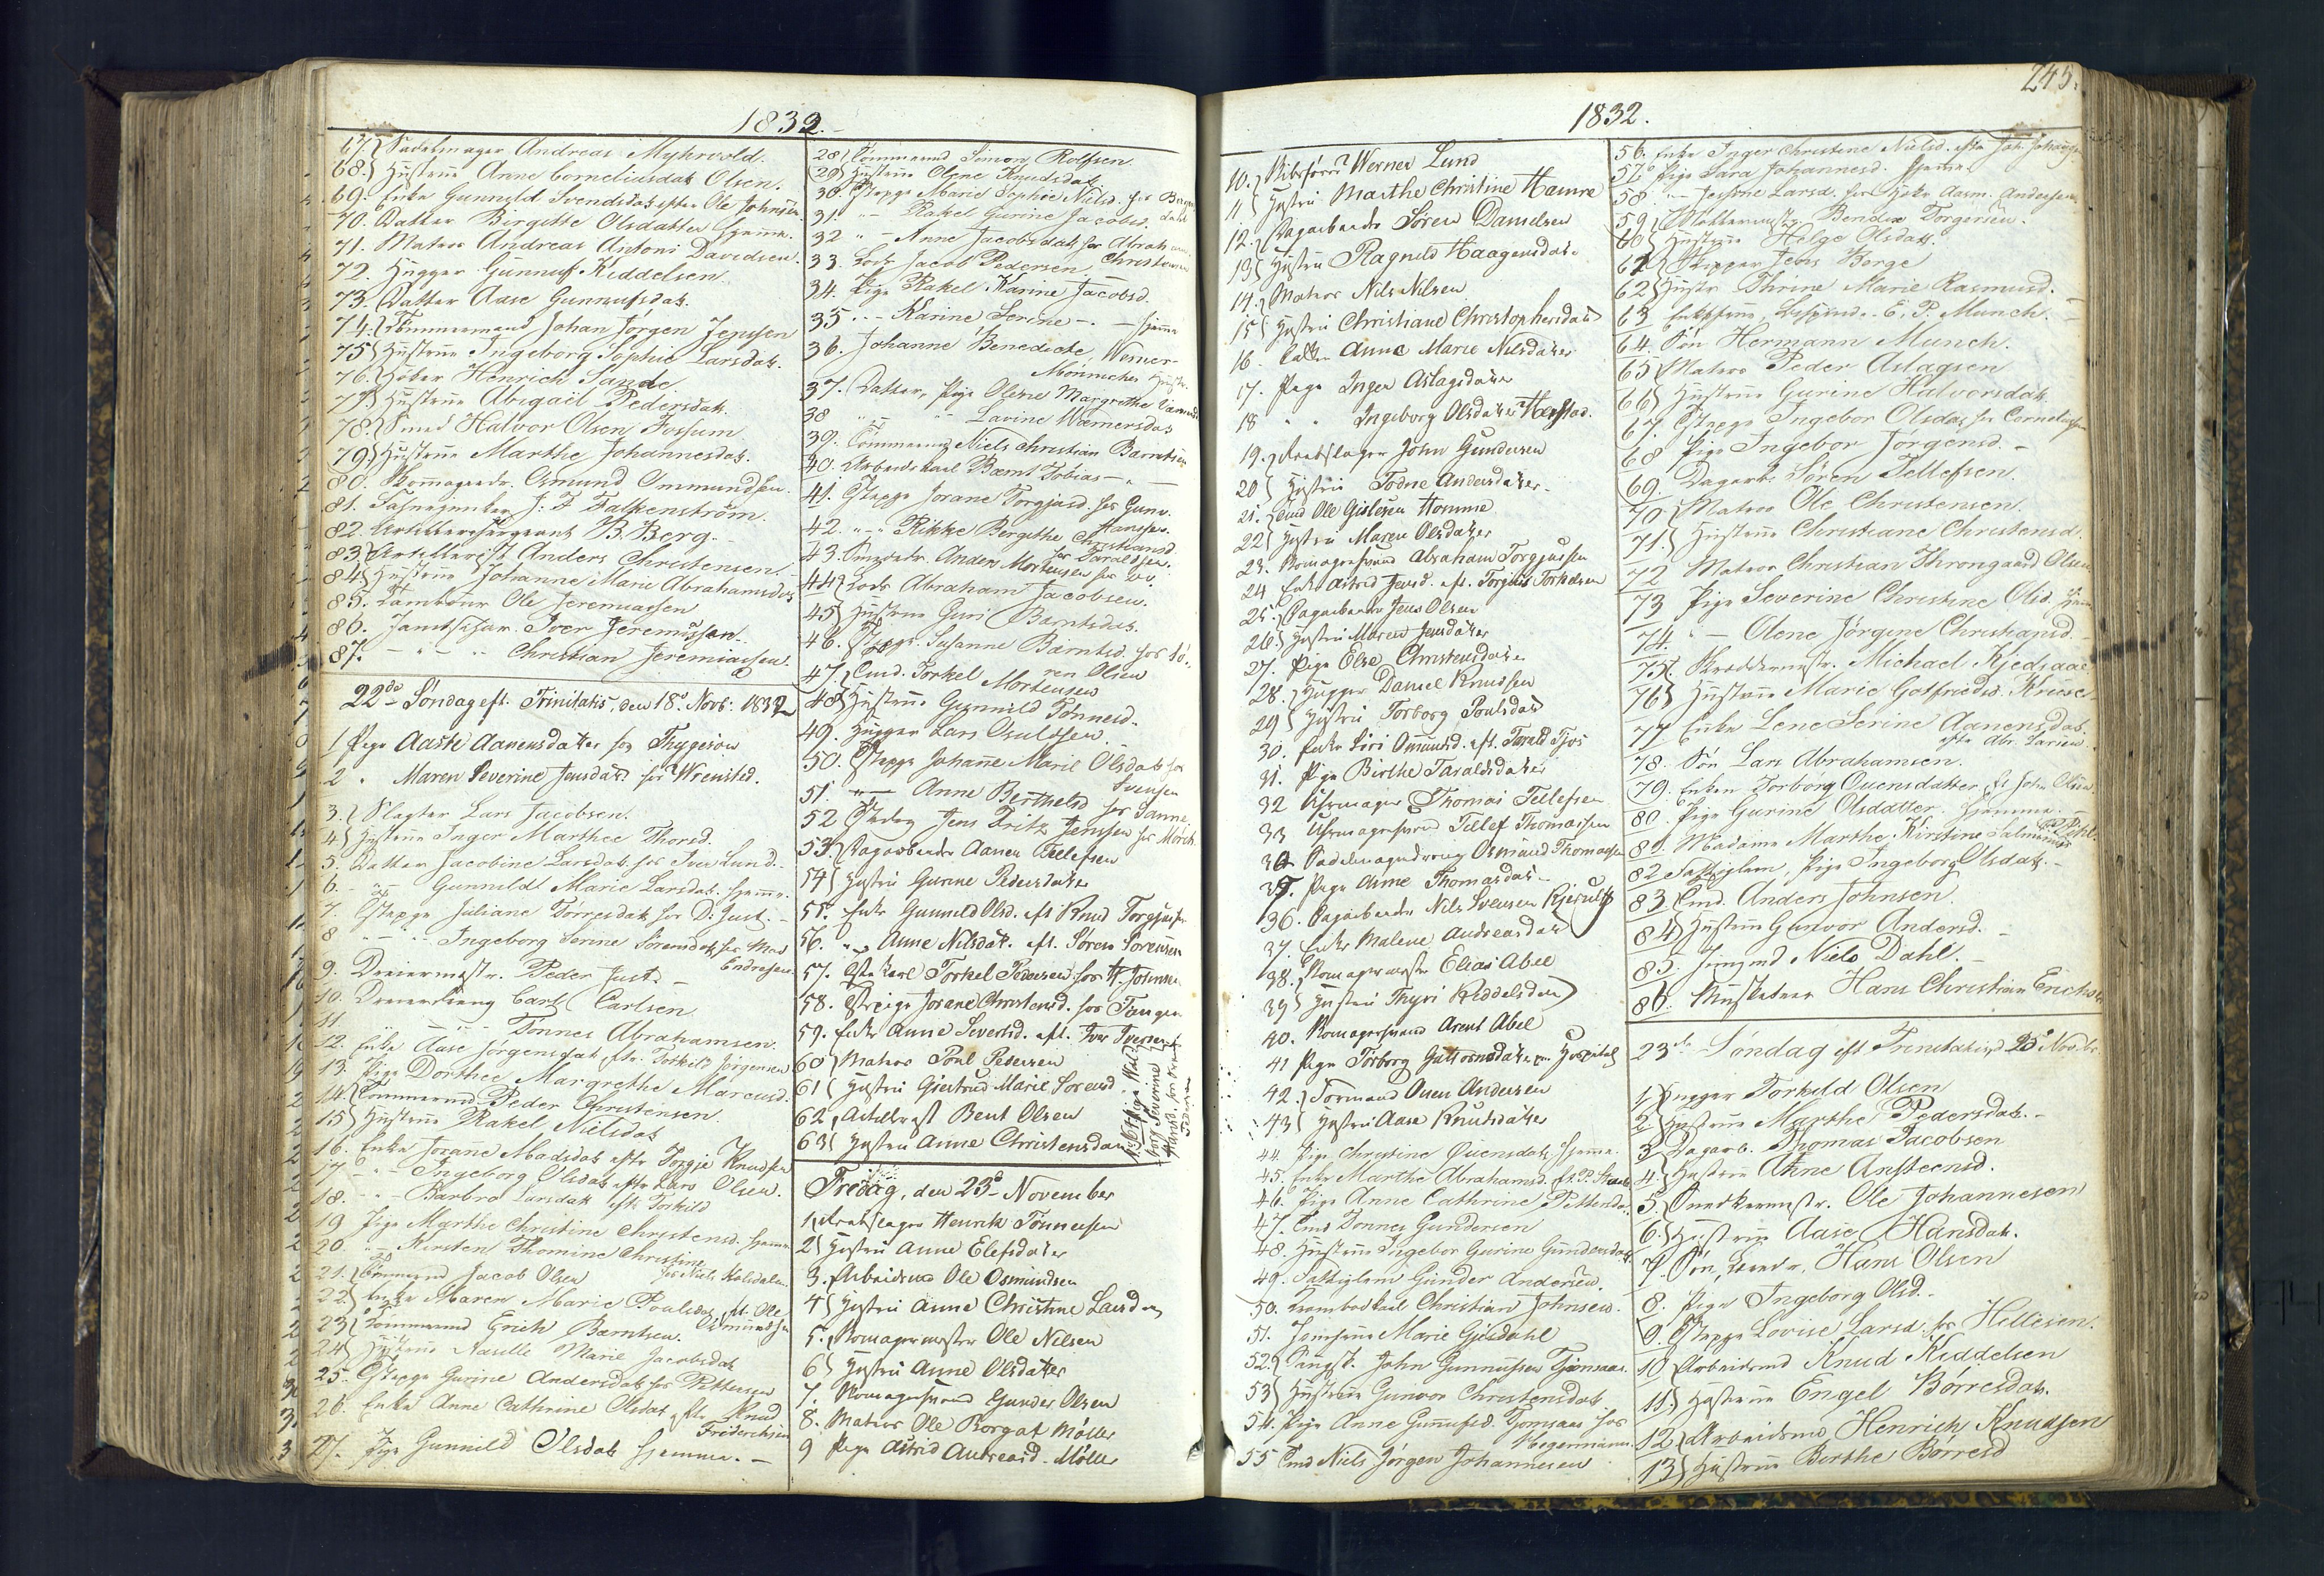 1832.
67. Sadelmager Andreas Myhrvold.
68. Hustrue Anne Corneliusdatr Olsen.
69. Enke Gunnild Svendsdatr efter Ole Johnsen.
70. Datter Birgitte Olsdatter hjemme.
71. Matros Andreas Antoni Davidsen.
72. Hugger Gunnuf Kiddelsen.
73. Datter Aase Gunnufsdatr.
74. Tømmermand Johan Jørgen Jenssen
75. Hustrue Ingeborg Sophie Larsdatr.
76. Høker Henrich Sande.
77. Hustrue Abigail Pedersdatr.
78. Smed Halvor Olsen Fossum
79. Hustrue Marthe Johannesdatr.
80. Osmund Ommundsen.
81. J: F Falkenstrøm.
82. B. Berg.
83. Artillerist Anders Christensen.
84. Hustrue Johanne Marie Abrahamsdatr
85. Tambour Ole Jeremiassen
86. Iver Jeremiassen
87. - " - Christian Jeremiassen.
22de Søndag eft. Trinitatis, den 18de Novb: 1832
1 Pige Aaste Aanensdatter hos Thygeson
2 " Maren Severine Jensdatr. hos Wrensted.
3. Slagter Lars Jacobsen.
4. Hustrue Inger Marthee Thorsd.
5. Datter Jacobine Larsdatr. hos Iver Lund.
6. - " - Gunnild Marie Larsdatr. hjemme.
7. Juliane Børresdatr hos D: Just. -
8 - " - Ingeborg Serine Sørensdatr hos Mad
Endresen
9. Dreiermestr. Peder Just -
10. Dreierdreng Carl Carlsen
11 - " - Tønnes Abrahamsen.
12. Enke Aase Jørgensdatr eftr. Torkild Jørgensen
13. Pige Dorthee Margrethe Marcusd.
14. Tømmermd Peder Christensen
15. Hustrue Rakel Nielsdatr
16. Enke Jorane Madsdatr eftr Torgje Knudsen
17. " - Ingeborg Olsdatr eftr Lars Olsen.
18. - " - Barbro Larsdatr eftr Torkild
19 Pige Marthe Christine Christensd. hjemme
20. " - Kirsten Thomine Christine
hos Niels Holsdalen
21. Tømmermd Jacob Olsen
22. Enke Maren Marie Poulsdatr, eft. Ole
Osmundsen
23. Tømmermd Erich Berntsen.
24. Hustrue Marie Jacobsdatr
25. Gurine Andersdatr hos Pettersen
26. Enke Anne Cathrine Olsdatr eftr Knud
Frederichsen
27. Pige Gunnild Olsdatr hjemme. -
28. Tømmermd Simon Rolfsen.
29. Hustrue Olene Knudsdatr
30. Marie Sophie Nielsd. hos
31. " - Rakel Gurine Jacobsd.
32 " - Anne Jacobsdatr hos Abraham
Christensen
33. Lods Jacob Pedersen
34. Pige Rakel Karine Jacobsd.
35 " - Karine Serine - " - hjemme
36. Johanne Benedicte, Werner
37. Datter, Pige Olene Margrethe
38 " - " Lavine Wernersdatr
39. Tømmermd Niels Christian Berntsen
40. Arbeidskarl Bernt Tobias - " -
41. Jorane Torgjusd. hos Gunv.
Hanssen.
42. " - " Rikke Bergithe Christiansd.
hos Taraldsen.
43. Anders Mortensen
44. Lods Abraham Jacobsen.
45 Hustrue Guri Berntsdatr.
46. Susanne Berntsd. hos Sø-
ren Olsen
47. Tmd. Torkel Mortensen
48 Hustrue Gunnild Tønnesd.
49. Hugger Lars Osuldsen
50. Johanne Marie Olsdatr hos
Svensen
51. " - Anne Berthelsd hos Sanne
52 Jens Fritz Jenssen hos Mørch
53. Dagarbeider Aanen Tellefsen
54 Hustru Gurine Pedersdatter
55. Enke Gunnild Olsd. eft Knud Torgjusen
56. " Anne Nilsdatr. eft. Søren Sørensen
57. Torkel Pedersen hos H. Johnsen
58. Jorane Christensd. hos Tangen
59. Enke Anne Severtsd. eft. Iver Iversen
60 Matros Poul Pedersen
61 Hustru Giertrud Marie Sørensd
62. Artillerist Bent Olsen
63 Hustru Anne Christensdatter
Fredag, den 23de November
1. Henrik Tønnessen
2 Hustru Anne Elefsdatter
3. Arbeidsmd Ole Osmundsen
4 Hustru Anne Christine Larsdtr
5. Skomagermester Ole Nilsen
6 Hustru Anne Olsdatter
7. Skomagersvend Gunder Olsen
8. Matros Ole Borgat Møller
9 Pige Astrid Andreasd. Møller
245.
1832.
10. Werner Lund
11 Hustru Marthe Christine Hamre
12. Dagarbeider Søren Danielsen
13 Hustru Ragnild Haagensdatr.
14. Matros Nils Nilsen
15 Hustru Christiane Christophersdatr
16. Datter Anne Marie Nilsdatter
17. Pige Inger Aslagsdatter
18 " " Ingeborg Olsdatter Herstad.
19. John Gundersen
20 Hustru Todne Andersdatter.
21. Tmd Ole Gislesen Homme
22 Hustru Maren Olsdatter
23. Skomagersvend Abraham Torgjussen
24 Enke Astrid Jensd. eft. Torgius Torkelsen
25. Dagarbeider Jens Olsen
26. Hustru Maren Jensdatter
27. Pige Else Christensdatter
28. Hugger Daniel Knudsen
29 Hustru Torborg Poulsdatr
30. Enke Siri Omunsd. eft. Tarald Tjos
31. Pige Birthe Taraldsdatter
32 Uhrmager Thomas Tellefsen
33 Uhrmagersvend Tellef Thomassen
34 Sadelmagerdreng Osmund Thomassen
35. Pige Anne Thomasdatr
36. Dagarbeider Nils Svensen Kjerulf
37. Enke Malene Andreasdatr
38. Skomagermester Elias Abel
39 Hustru Thyri Keddelsdatr
40. Skomagersvend Arent Abel
41 Pige Torborg Guttormsdatter Hospitalet
42. Formand Ouen Andersen
43 Hustru Aase Knudsdatter
44. Pige Christine Ouensdatr hjemme.
45. Enke Marthe Abrahamsd.
46. Pige Anne Cathrine Pettersdatr
47. Tmd Tønnes Gundersen
48. Hustrue Ingebor Gurine Gundersdatr
49. Fattiglem Gunder Andersen.
50. Christian Johnsen.
51. Jomfrue Marie Gjesdahl
52. John Gunnufsen Tjomsaas
53 Hustrue Gunvor Christensdatr
54. Pige Anne Gunnufsd. Tjomsaas hos
Hegermann.
55 Tmd Niels Jørgen Johannesen
56. Enke Inger Christine Nielsd. eftr Joh: Johannes.
57. Pige Sara Johannesd. hjemme
58. " - Larsd. hos Anderssen
59. Bendix Torgersen.
60 Hustrue Helge Olsdatr.
61 Skipper Jens Borge
62 Hustr. Thrine Marie Rasmusd.
63 E. P. Munch.
64. Søn Hermann Munch.
65 Matros Peder Aslagsen
66 Hustrue Gurine Halvorsdatr.
67. Ingebor Olsdatr hos Corneliussen
68 Pige Ingebor Jørgensd. -
69. Dagarb. Søren Tellefsen.
70. Matros Ole Christensen.
71. Hustrue Christiane Christensd.
72 Matros Christian Throngaard Olsen
73 Pige Severine Christine Olsd hjem
74. " - Olene Jørgine Christiansd.
75. Skreddermestr. Michael Kjedsaae
76 Hustrue Marie Gotfriedsd. Kruse
77 Enke Lene Serine Aanensdatr.
efter Abr. Larsen.
78. Søn Lars Abrahamsen.
79. Enken Torborg Ouensdatter eft John Olsen
80. Pige Gurine Olsdatter. hjemme. -
81. Madame Marthe Kirstine
82 Fattiglem, Pige Ingeborg Olsdatr. -
83 Tmd. Anders Johnsen.
84 Hustrue Gunvor Andersd. -
85. Niels Dahl. -
86. Hans Christian Erichsen
23de Søndag eft Trinitatis d 25de Novbr
1. Hugger Torkild Olsen
2 Hustrue Marthe Pedersdatr. -
3 Dagarb. Thomas Jacobsen
4. Hustrue Anne Ansteensd.
5. Snedkermestr. Ole Johannesen
6. Hustrue Aase Hansdatr.
7. Søn, Hans Olsen
8. Pige Ingeborg Olsd.-
9. Lovise Larsd. hos Hellesen.
10 Arbeidsmd Knud Kiddelsen
11. Hustrue Engel Børresdatr.
12. Arbeidsmd Henrich Knudsen
13 Hustrue Berthe Børresd